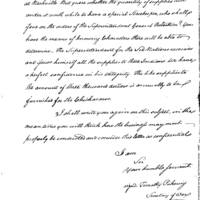 at Nashville this year whether the quantity of supplies will
under it such while to have a special Storekeeper, who shall
give on the orders of the Superintendant General or Detachment. You
have the means of knowing better than there will be able to
determine. The Superintendant for the Six Nations receives
and issues himself all the supplies to those Indians. We have
a perfect confidence in his integrity. The like supplies to
the amount of three thousand dollars is annually to be
furnished for the Chickasaws.
I shall write you again on this subject, in the
mean time you will think how the business may most
properly be conducted and consider this letter as confidential
I am
Sir
Your humble servant
sign'd Timothy Pickering
Secretary of War